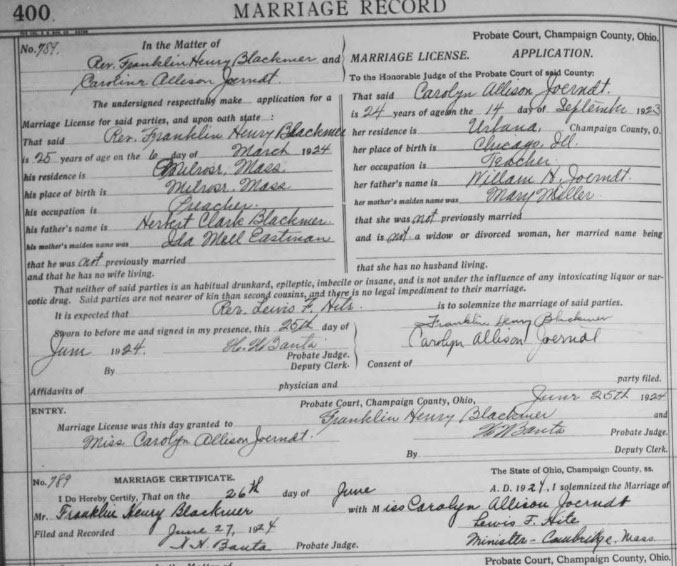 400.
MARRIAGE RECORD
Probate Court, Champaign County, Ohio.
No. 789. In the Matter of
Rev. Franklin Henry Blackmer and
Caroline Allison Joerndt.
The undersigned respectfully make application for a
Marriage License for said parties, and upon oath state:
That said Rev. Franklin Henry Blackmer
is 25 years of age on the 6 day of March 1924
his residence is Melrose, Mass
his place of birth is Melrose, Mass
his occupation is Preacher.
his father's name is Herbert Clark Blackmer
his mother's maiden name was Ida Mell Eastman
that he was not previously married
and that he has no wife living.
MARRIAGE LICENSE. APPLICATION.
To the Honorable Judge of the Probate Court of said County:
That said Carolyn Allison Joerndt.
is 24 years of age on the 14 day of September 1923
her residence is Urbana, Champaign County, O.
her place of birth is Chicago, Ill.
her occupation is Teacher.
her father's name is William H. Joerndt.
her mother's maiden name was Mary Miller
that she was not previously married
and is not a widow or divorced woman, her married name being
that she has no husband living.
That neither of said parties is an habitual drunkard, epileptic, imbecile or insane, and is not under the influence of any intoxicating liquor or nar-
cotic drug. Said parties are not nearer of kin than second cousins, and there is no legal impediment to their marriage.
It is expected that Rev. Lewis F. Hite is to solemnize the marriage of said parties.
Sworn to before me and signed in my presence, this 25th day of
June 1924. Banta
Probate Judge.
By Deputy Clerk.
Franklin Henry Blackmer
Carolyn Allison Joerndt
Consent of
Affidavits of physician and party filed.
ENTRY. Probate Court, Champaign County, Ohio, June 25th 1924
Marriage License was this day granted to Franklin Henry Blackmer and
Miss Carolyn Allison Joerndt. Banta Probate Judge.
By Deputy Clerk.
No. 789 MARRIAGE CERTIFICATE. The State of Ohio, Champaign County, ss.
I Do Hereby Certify, That on the 26th day of June A. D. 1924, I solemnized the Marriage of
Mr. Franklin Henry Blackmer with Miss Carolyn Allison Joerndt
Filed and Recorded June 27, 1924 Lewis F. Hite
Banta Probate Judge. Minister - Cambridge, Mass
In the Matter of
Probate Court, Champaign County, Ohio.